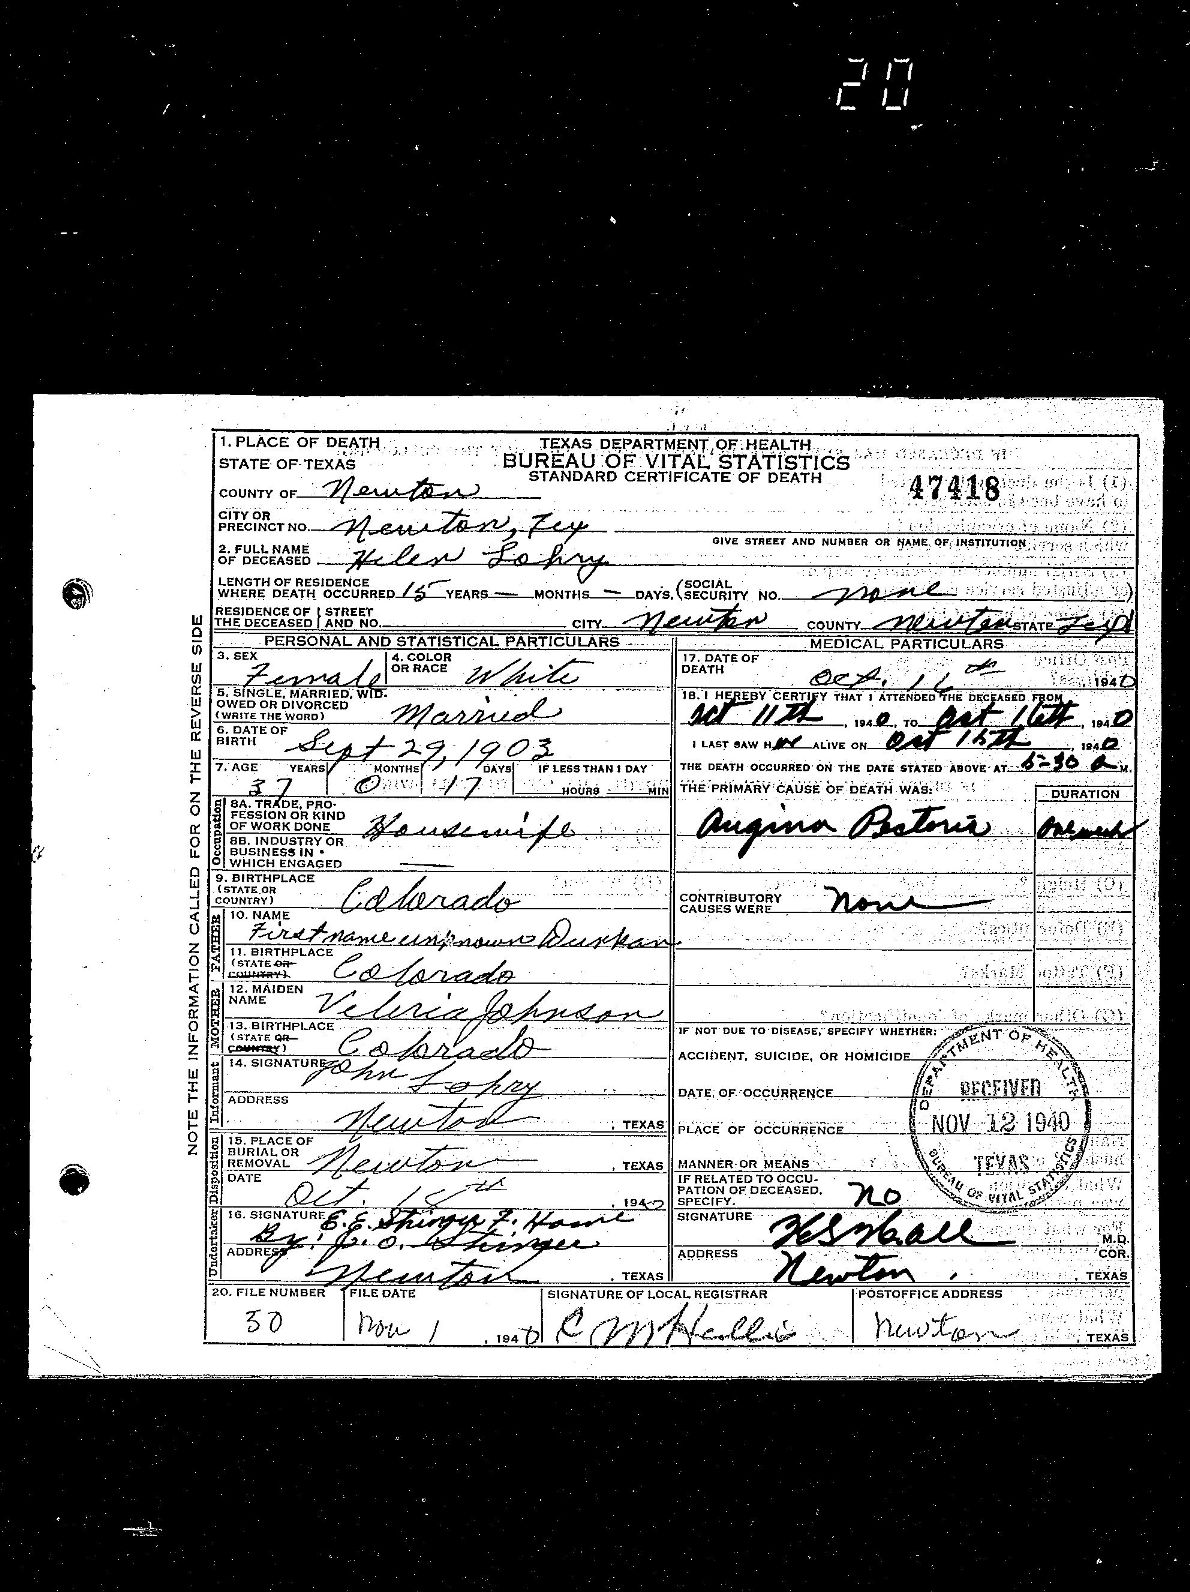 20
1. PLACE OF DEATH
STATE OF TEXAS
TEXAS DEPARTMENT OF HEALTH
BUREAU OF VITAL STATISTICS
STANDARD CERTIFICATE OF DEATH
47418
COUNTY OF Newton
CITY OR PRECINCT NO. Newton, Tex
GIVE STREET AND NUMBER OR NAME OF INSTITUTION
2. FULL NAME OF DECEASED Helen Lohry
LENGTH OF RESIDENCE WHERE DEATH OCCURRED 15 YEARS — MONTHS — DAYS. (SOCIAL SECURITY NO. none
RESIDENCE OF THE DECEASED STREET AND NO. CITY Newton COUNTY Newton STATE
PERSONAL AND STATISTICAL PARTICULARS
3. SEX Female 4. COLOR OR RACE White
5. SINGLE, MARRIED, WIDOWED OR DIVORCED (WRITE THE WORD) Married
6. DATE OF BIRTH Sept 29, 1903
7. AGE YEARS MONTHS DAYS IF LESS THAN 1 DAY
37 0 17 HOURS MIN
Occupation
8A. TRADE, PROFESSION OR KIND OF WORK DONE Housewife
8B. INDUSTRY OR BUSINESS IN WHICH ENGAGED —
9. BIRTHPLACE (STATE OR COUNTRY) Colorado
FATHER
10. NAME First name unknown Durkan
11. BIRTHPLACE (STATE OR COUNTRY) Colorado
MOTHER
12. MAIDEN NAME Veleria Johnson
13. BIRTHPLACE (STATE OR COUNTRY) Colorado
Informant
14. SIGNATURE John Lohry
ADDRESS Newton, TEXAS
Disposition
15. PLACE OF BURIAL OR REMOVAL Newton, TEXAS
DATE Oct. 18th, 1940
Undertaker
16. SIGNATURE E. E. Stringer F. Home
By: J. O. Stringer
ADDRESS Newton, TEXAS
MEDICAL PARTICULARS
17. DATE OF DEATH Oct. 16th 1940
18. I HEREBY CERTIFY THAT I ATTENDED THE DECEASED FROM
Oct 11th, 1940, TO Oct 16th, 1940
I LAST SAW Her ALIVE ON Oct 15th, 1940
THE DEATH OCCURRED ON THE DATE STATED ABOVE AT 5-30 a M.
THE PRIMARY CAUSE OF DEATH WAS: DURATION
Angina Pectoris One week
CONTRIBUTORY CAUSES WERE None
IF NOT DUE TO DISEASE, SPECIFY WHETHER:
ACCIDENT, SUICIDE, OR HOMICIDE
DATE OF OCCURRENCE
PLACE OF OCCURRENCE
MANNER OR MEANS
IF RELATED TO OCCUPATION OF DECEASED, SPECIFY. No
DEPARTMENT OF HEALTH
RECEIVED
NOV 12 1940
TEXAS
BUREAU OF VITAL STATISTICS
SIGNATURE M.D.
ADDRESS Newton, COR. TEXAS
20. FILE NUMBER 30
FILE DATE Nov 1, 1940
SIGNATURE OF LOCAL REGISTRAR C M Hallie
POSTOFFICE ADDRESS Newton, TEXAS
NOTE THE INFORMATION CALLED FOR ON THE REVERSE SIDE